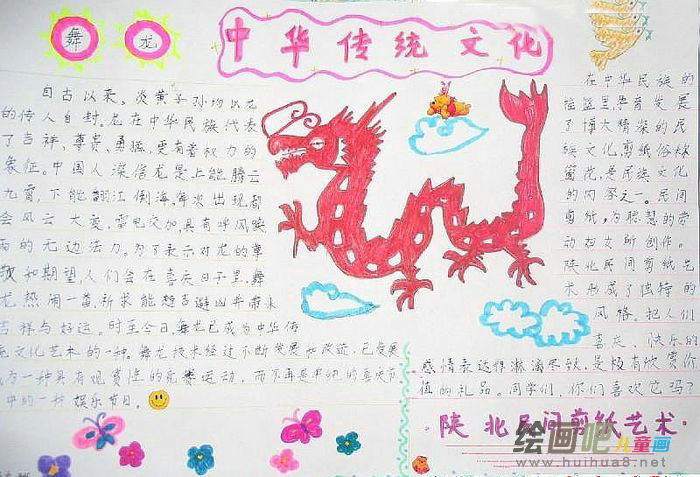 舞 龙
中华传统文化
自古以来，炎黄子孙均以龙
的传人自封。龙在中华民族代表
了吉祥、尊贵、勇猛，更有着权力的
象征。中国人深信龙是上能腾云
九霄，下能翻江倒海每次出现都
会风云大变，雷电交加，具有呼风唤
雨的无边法力。为了表示对龙的尊
敬和期望，人们会在喜庆日子里，舞
龙热闹一番，祈求能趋吉避凶并带来
吉祥与好运。时至今日，舞龙已成为中华传
统文化艺术的一种。舞龙技术经过不断发展和改造，已发展
为一种具有观赏性的竞赛运动，而不再是
中的一种娱乐节目。
在中华民族的
摇篮里孕育发展
了博大精深的民
族文化剪纸俗称
窗花是民族文化
的内容之一。民间
剪纸，为聪慧的劳
动妇女所创作。
陕北民间剪纸艺
术形成了独特的
风格。把人们
喜庆、快乐的
感情表达得淋漓尽致，是极有欣赏价
值的礼品。同学们，你们喜欢它吗？
陕北民间剪纸艺术
绘画吧儿童画
www.huihua8.net